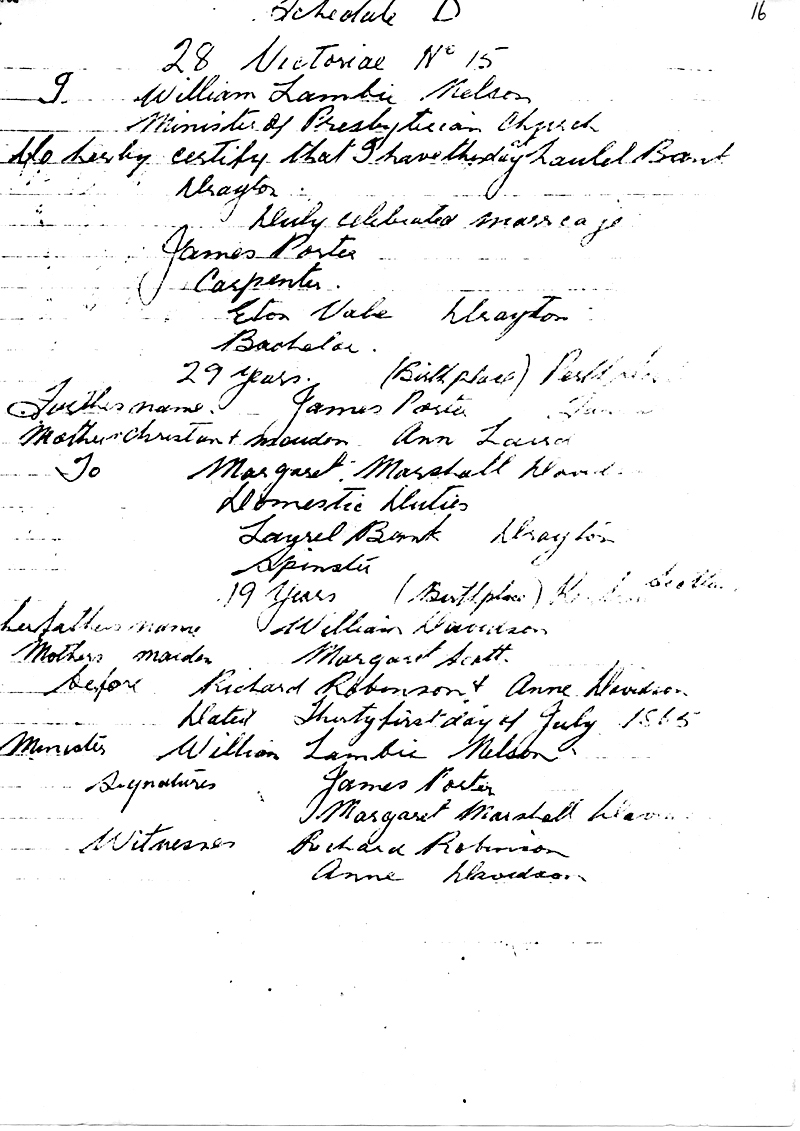 Schedule D
16
28 Victoriae No 15
I. William Lambie Nelson
Minister of Presbyterian Church
Do herby certify that I have this day Laurel Bank
Drayton
Duly celebrated marriage
James Porter
Carpenter.
Eton Vale Drayton
Bachelor.
29 years. (Birthplace)
Furthersname. James Porter
Mothers Christian + maiden Ann Laird
To Margaret Marshall
Domestic Duties
Laurel Bank Drayton
Spinster
19 Years (Birthplace)
her fathers name William Davidson
Mothers maiden Margaret Scott.
before Richard Robinson + Anne Davidson
Dated Thirty first day of July 1865
Minister William Lambie Nelson
Signatures James Porter
Margaret Marshall
Witnesses Richard Robinson
Anne Davidson